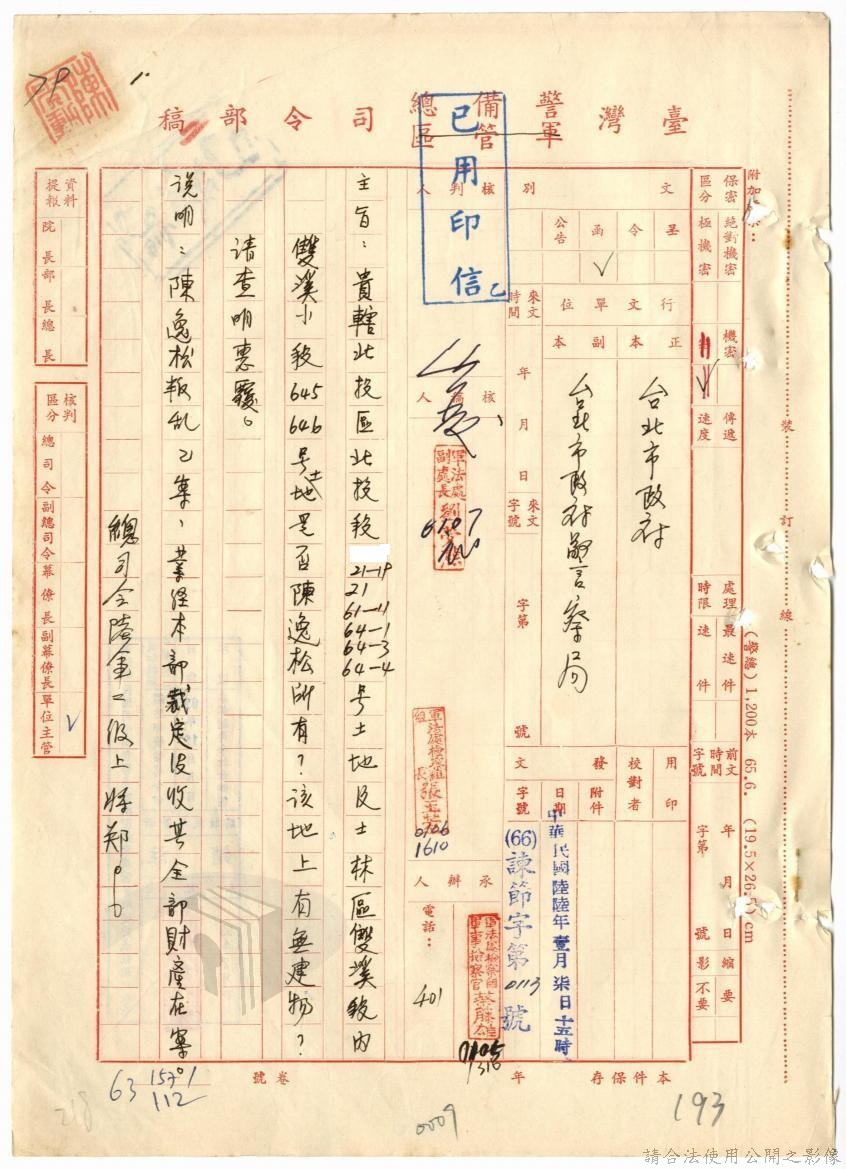 臺灣警備總司令部稿
軍管區
已用印信
附加
保密區分
絕對機密
極機密
機密
傳遞速度
處理時限
最速件
速件
前文時間字號
年月日
字第 號
縮影
要
不要
文別
呈
令
函
公告
行文單位
正本
副本
台北市政府
台北市政府警察局
來文時間
年月日
來文字號
字第 號
發文
用印
校對者
附件
日期
字號
中華民國陸陸年壹月柒日十五時
(66)諫節字第0113號
核判人
核稿人
軍法處副處長劉
0107
軍法處檢察組組長張玉芳
0106
1610
承辦人
電話:401
軍法處檢察組軍事檢察官蔡藤雄
0105
1310
主旨:貴轄北投區北投段21-19
21
61-11
64-1
64-3
64-4
号土地及士林區雙溪段內
雙溪小段645
646
号土地是否陳逸松所有?該地上有無建物?
請查明惠覆。
說明:陳逸松叛乱乙案,業經本部裁定沒收其全部財產在案。
總司令陸軍二級上將鄭○○
資料提報
院長
部長
總長
核判區分
總司令
副總司令
幕僚長
副幕僚長
單位主管
本件保存 年
卷號
63 1570.1
112
193
0009
218
79
1.
裝訂線
(警總)1,200本 65.6. (19.5×26.5)cm
請合法使用公開之影像